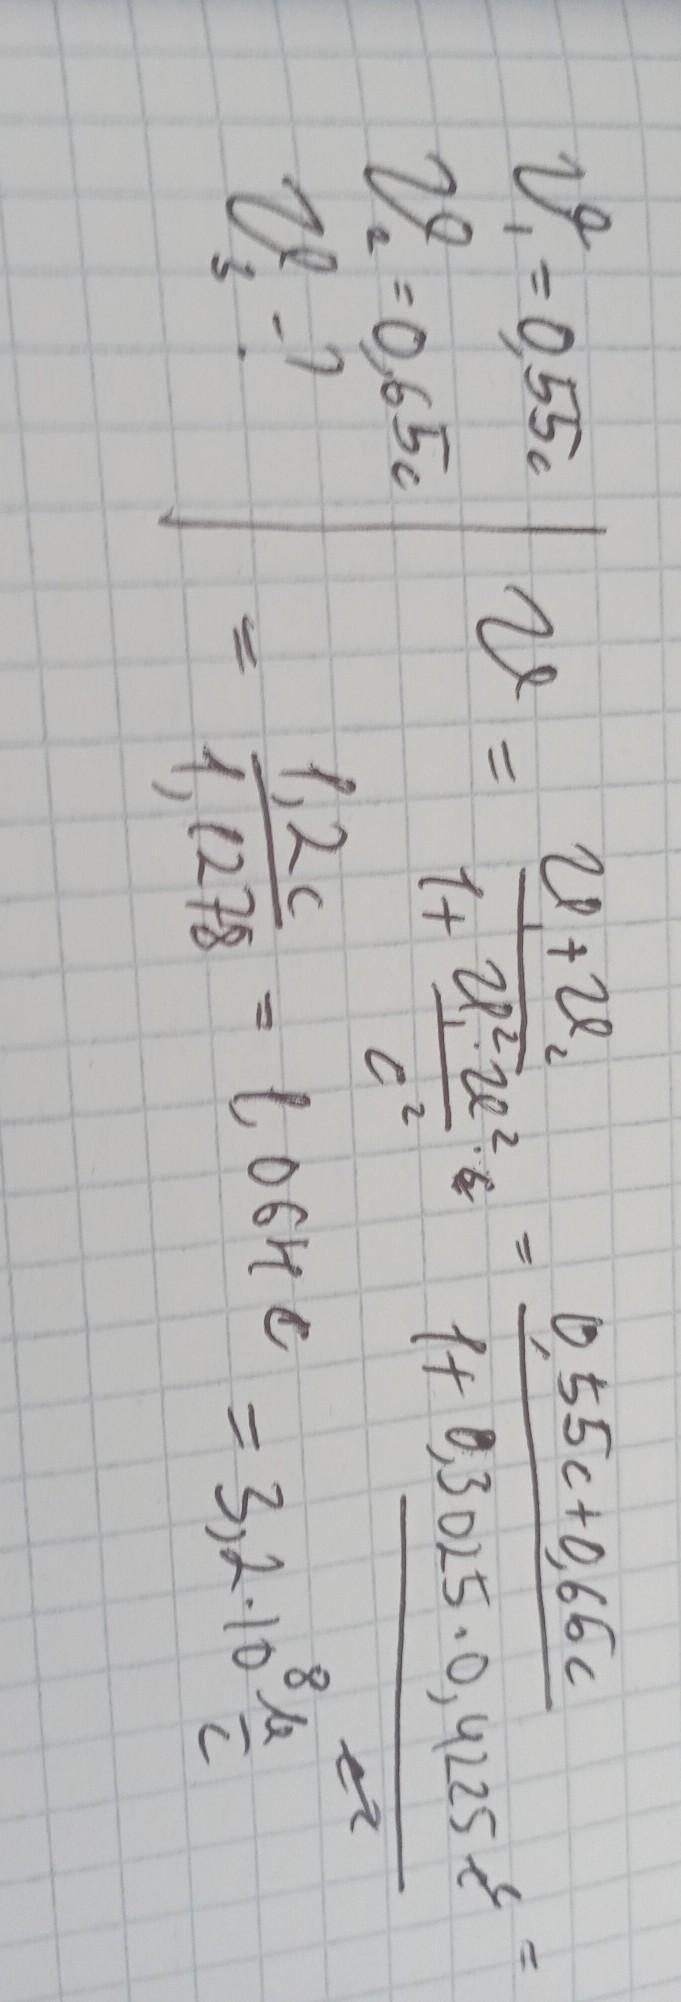 v₁ = 0,55c
v₂ = 0,65c
v₃ - ?
v = (v₁ + v₂) / (1 + (v₁² · v₂²) / c²) = (0,55c + 0,65c) / (1 + 0,3025 · 0,4225) =
= 1,2c / 1,1278 = 1,064 c = 3,2 · 10⁸ м/с